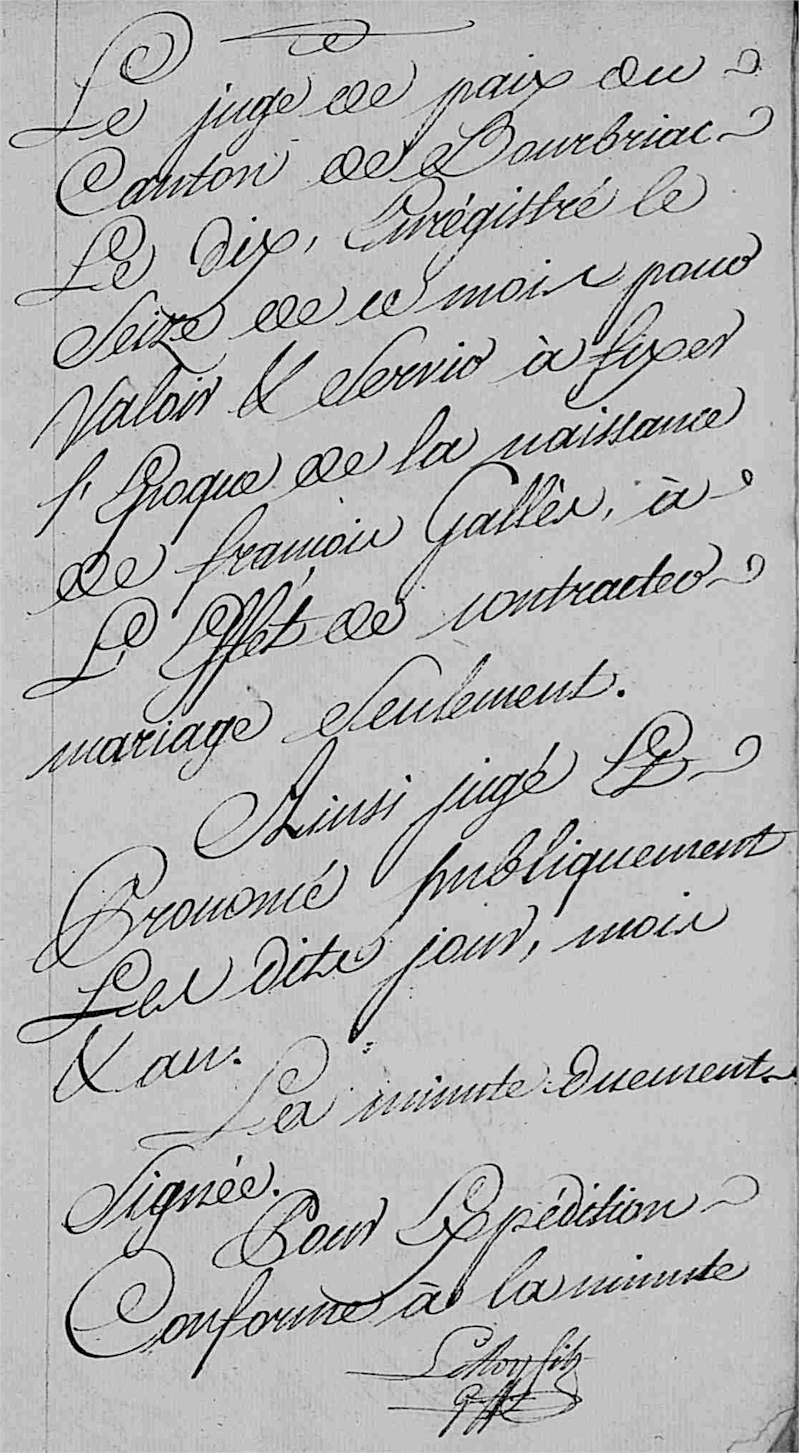 Le juge de paix du
Canton de Bourbriac
Le dix, Enrégistré le
Seize de ce mois pour
Valoir & Servir à fixer
l'Epoque de la naissance
de françois Gallès, à
L'Effet de contracter
mariage Seulement.
Ainsi jugé Et
Prononcé publiquement
Les dits jour, mois
& an.
La minute duement
Signée.
Pour Expédition
Conforme à la minute
Le Roy fils
Gff